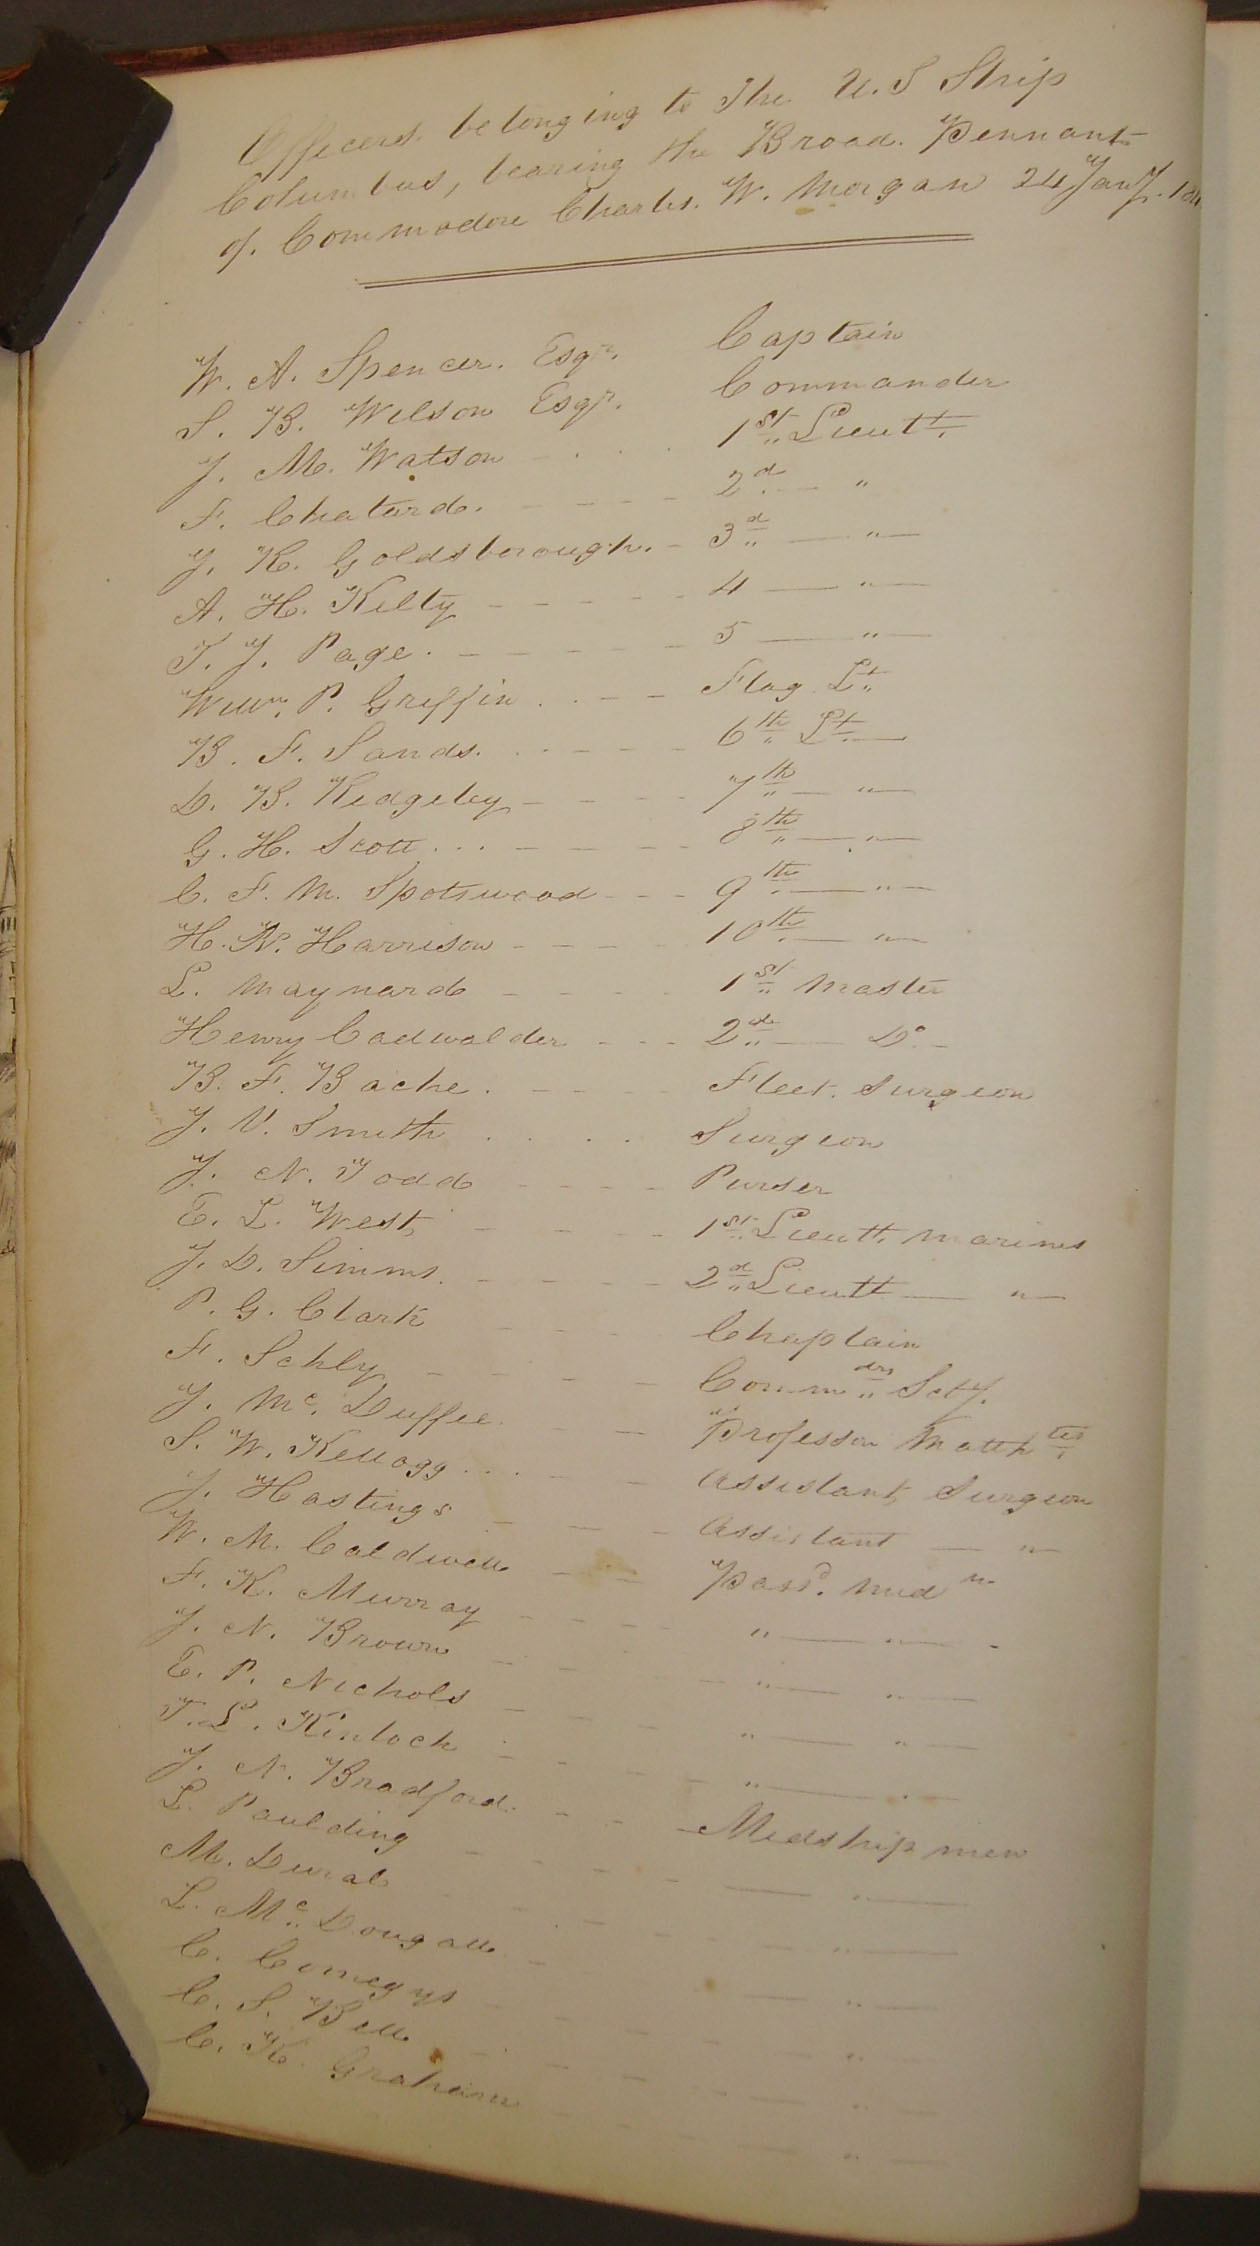 Officers belonging to The U.S Ship
Columbus, bearing the Broad. Pennant
of. Commodore Charles. W. Morgan 24 Jany.
W. A. Spencer. Esqr. Captain
S. B. Wilson Esqr. Commander
J. M. Watson - . . . 1st Lieutt.
F. Chatard. - - - - 2d — "
J. R. Goldsborough. - 3d — " —
A. H. Kilty - - - - - 4 — " —
T. J. Page. - - - - - 5 — " —
Willm. P. Griffin . . - - Flag Lt.
B. F. Sands. . . - - - 6th Lt. —
D. B. Ridgeley - - - - 7th — " —
G. H. Scott . . . - - - - 8th — " —
C. F. M. Spotswood - - - 9th — " —
H. N. Harrison - - - - 10th — " —
L. Maynard - - - - 1st Master
Henry Cadwalder - - - 2d — Do. -
B. F. Bache. - - - - Fleet. Surgeon
J. V. Smith . . . . Surgeon
J. N. Todd - - - - Purser
E. L. West, - - - - 1st Lieutt. Marines
J. D. Simms. - - - - 2d Lieutt — " —
P. G. Clark - - - Chaplain
F. Schly - - - - Commdrs Scty.
J. Mc. Duffee. - - Professor Mathtcs
S. W. Kellogg . . . - - Assistant Surgeon
J. Hastings - - - - Assistant — " —
W. M. Caldwell - - Passd. Midn
F. K. Murray - - - - " — " — -
J. N. Brown - - - - " — " —
E. P. Nichols - - - " — " —
T. L. Kinloch - - - " — . —
J. N. Bradford. - - - Midshipmen
L. Paulding - - - - — " —
M. Duval - - - — " —
L. Mc. Dougall - - — " —
C. Comegys - - - — " —
C. S. Bell - - - — " —
C. K. Graham - - - — " —